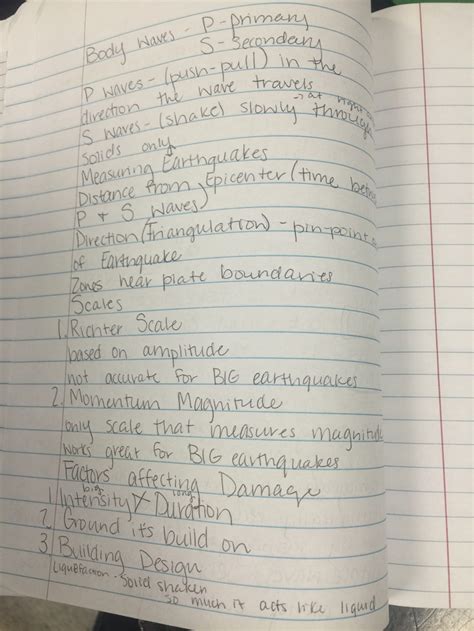 Body Waves - P-primary
S - Secondary
P waves - (push-pull) in the
direction the wave travels
→ at right
S waves - (shake) slowly through
solids only
Measuring Earthquakes
Distance from Epicenter (time
P & S waves)
Direction (Triangulation) - pin-points
of Earthquake
Zones near plate boundaries
Scales
1. Richter Scale
based on amplitude
not accurate for BIG earthquakes
2. Momentum Magnitude
only scale that measures magnitude
works great for BIG earthquakes
Factors affecting Damage
big long
1. Intensity & Duration
2. Ground its build on
3. Building Design
so much it acts like liquid